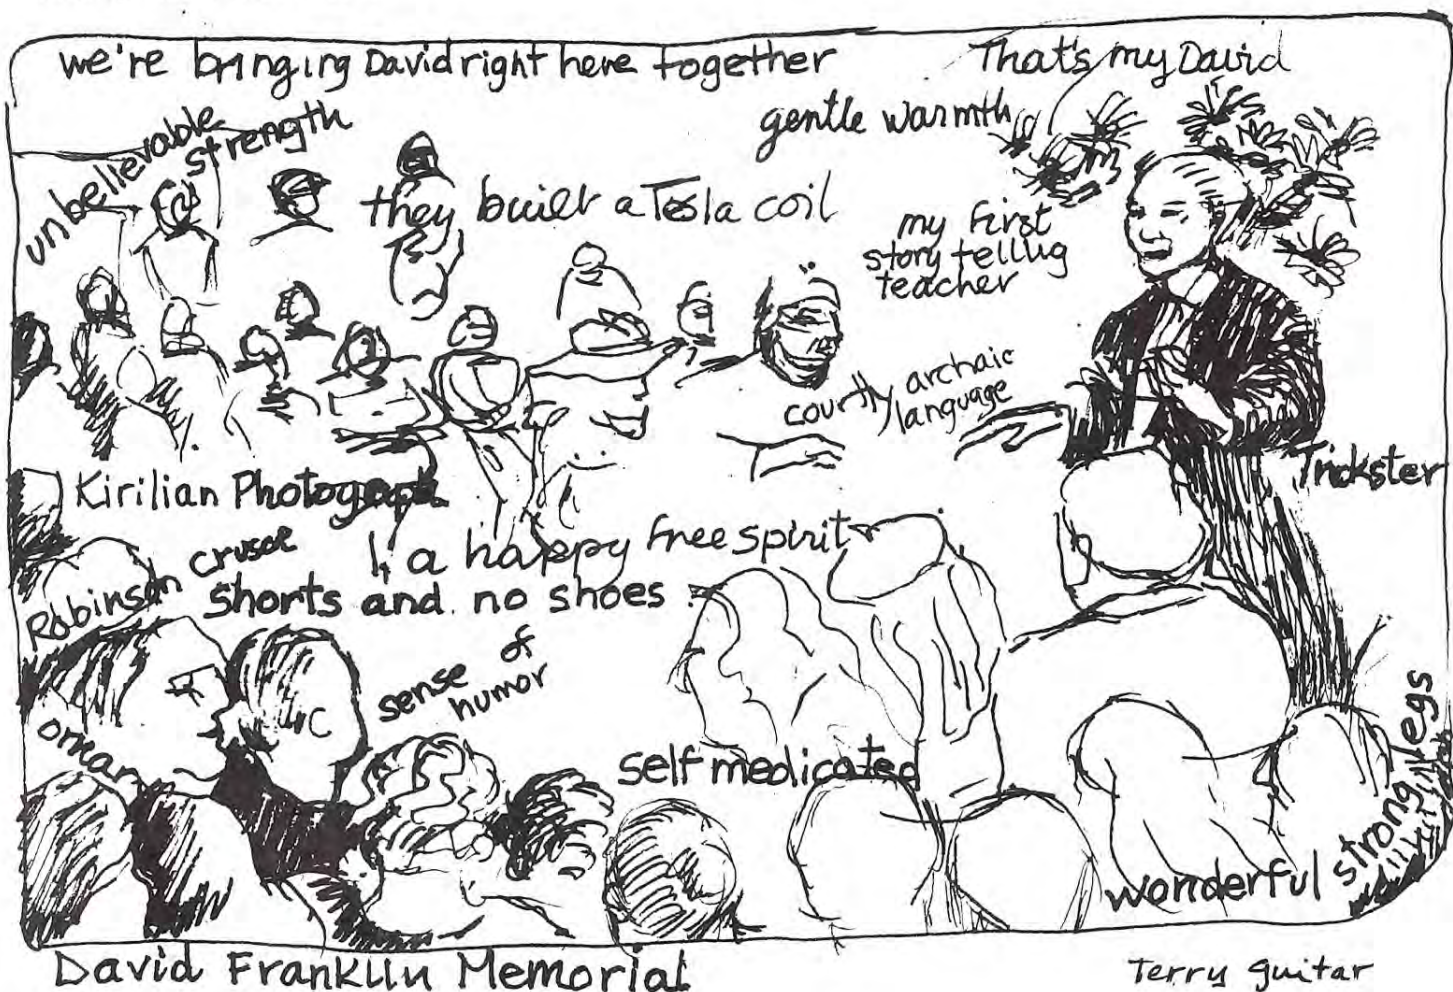 we're bringing David right here together
That's my David
gentle warmth
unbelievable
strength
they built a Tesla coil
my first
story tellug
teacher
courtly archaic
language
Trickster
Kirilian Photograph
Robinson Crusoe
a happy free spirit
shorts and no shoes
sense of
humor
self medicated
wonderful strong legs
David Franklin Memorial
Terry guitar